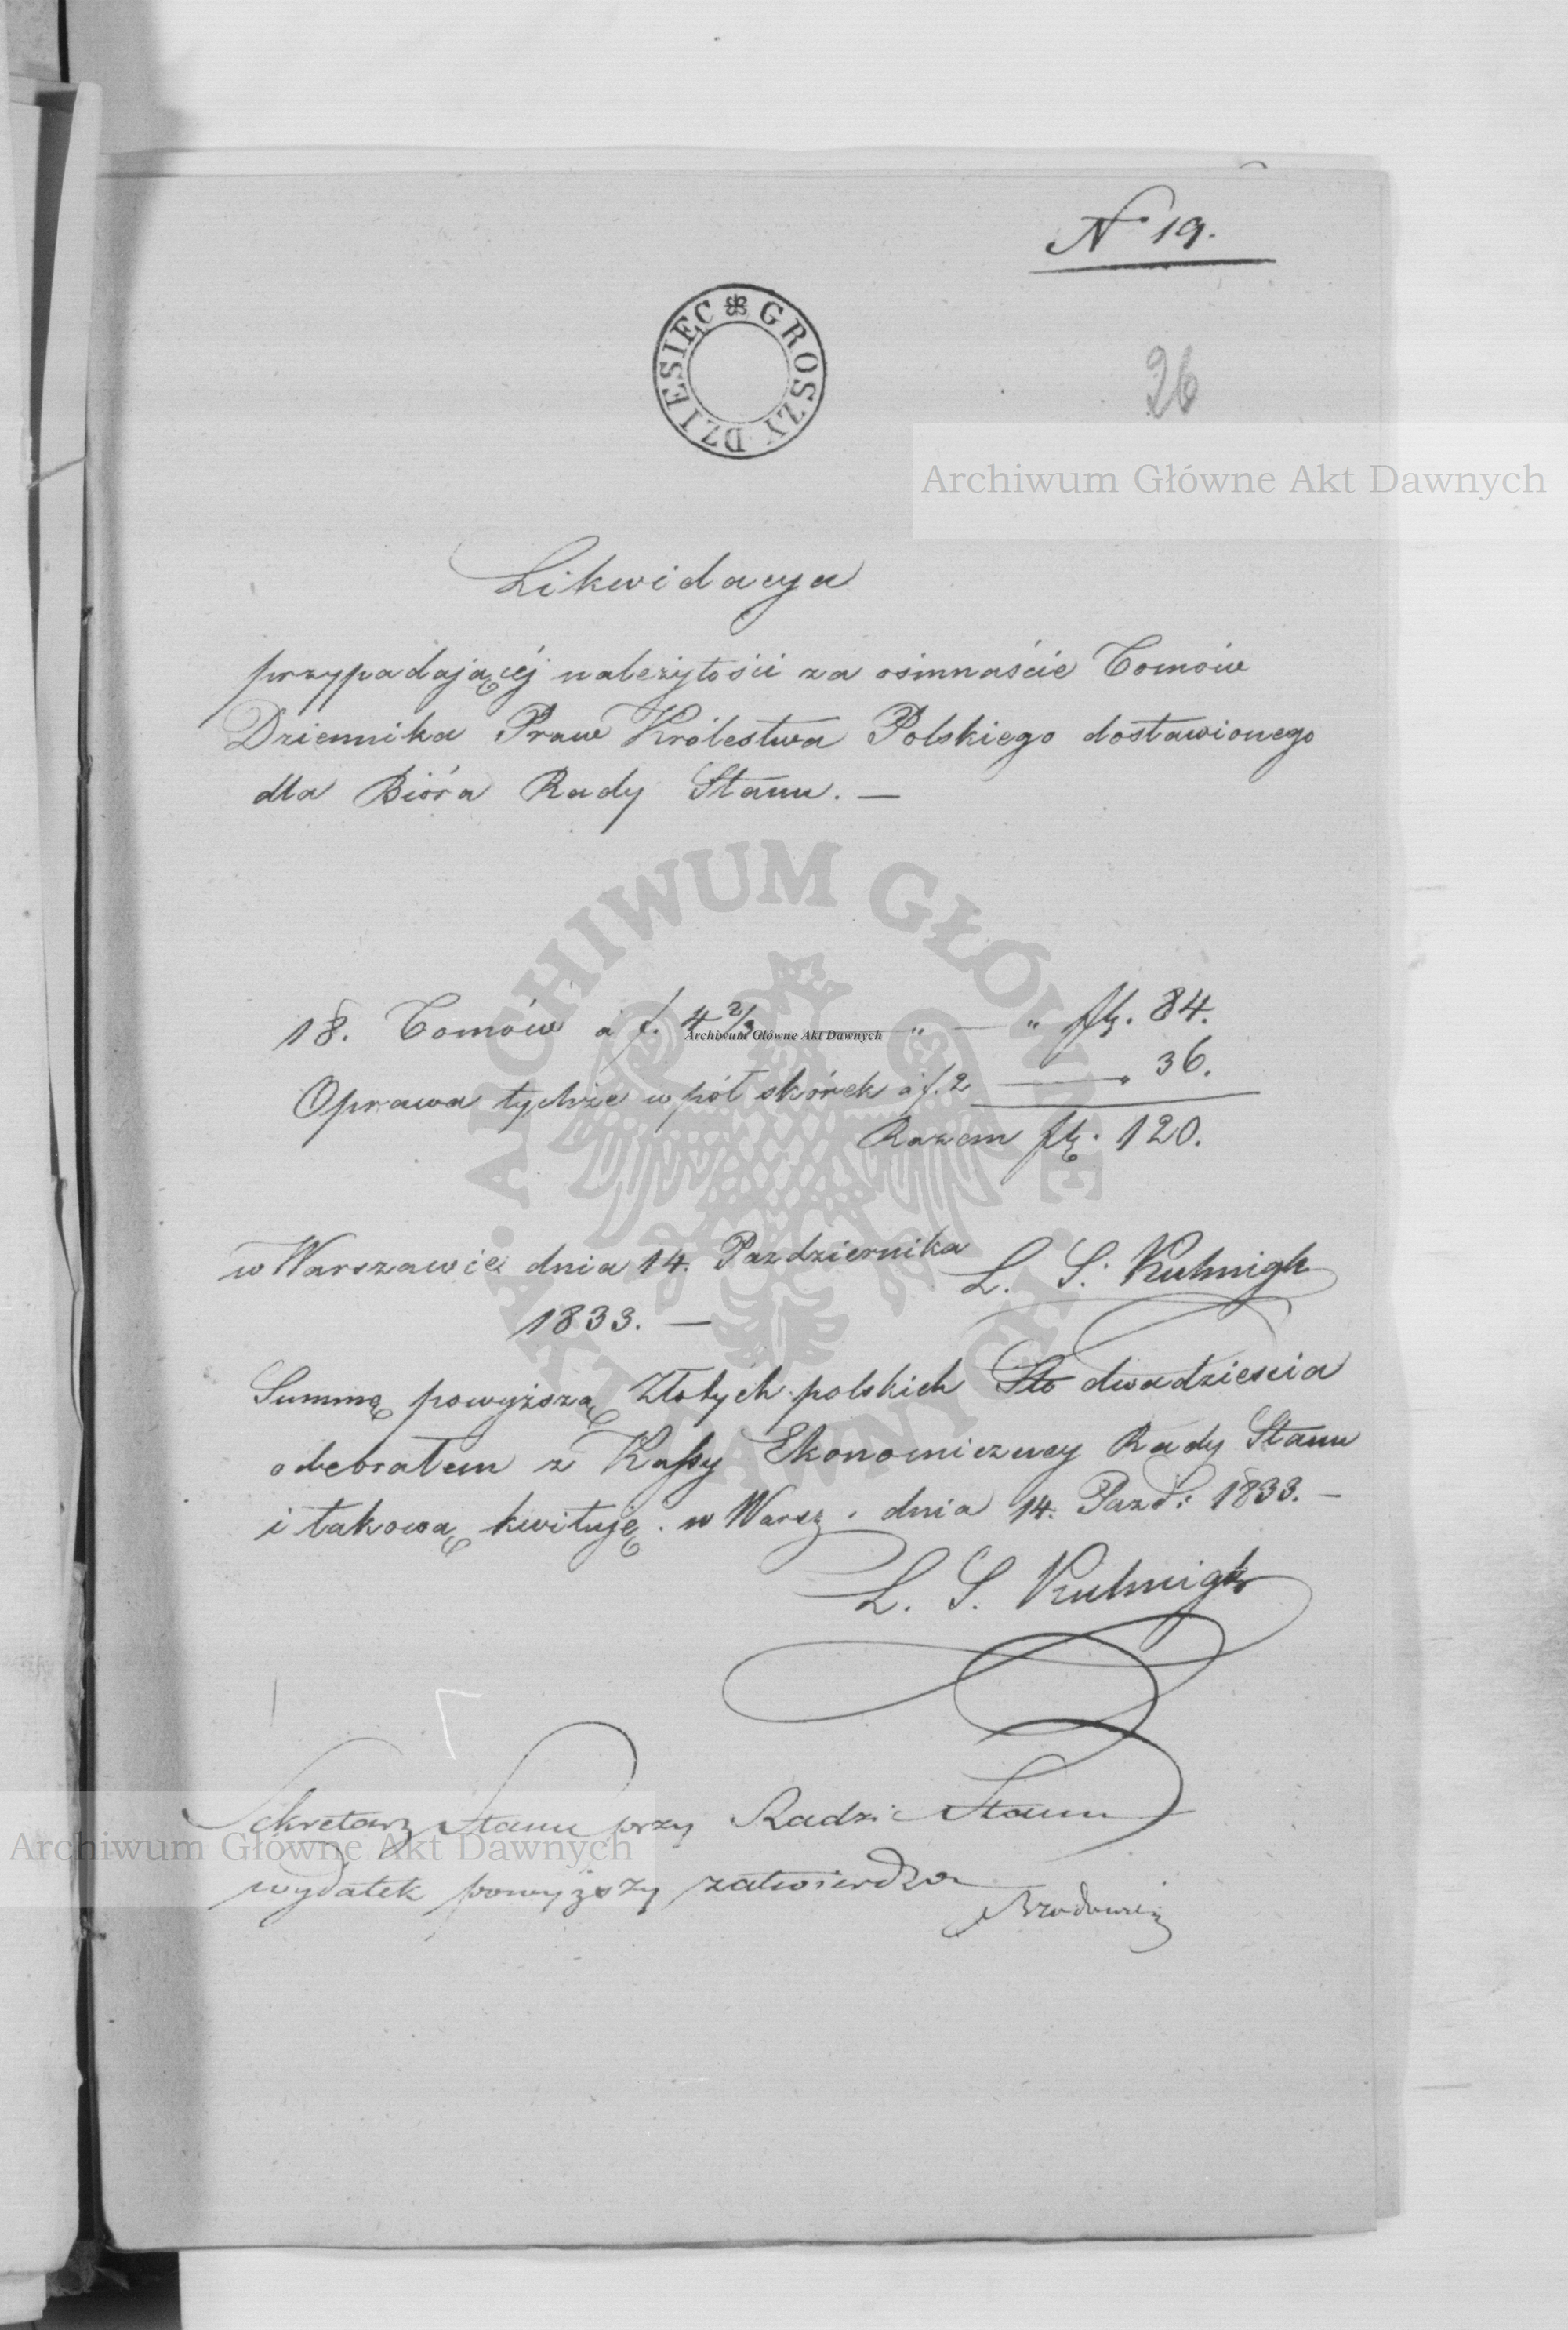 N° 19.
DZIESIĘĆ GROSZY
26
Archiwum Główne Akt Dawnych
Likwidacya
przypadającéj należytości za ośmnaście Tomów
Dziennika Praw Królestwa Polskiego dostawionego
dla Bióra Rady Stanu. —
ARCHIWUM GŁÓWNE AKT DAWNYCH
18. Tomów à f. 4 2/3 — " — " fl. 84.
Archiwum Główne Akt Dawnych
Oprawa tychże w pół skórek à f. 2 — 36.
Razem fl. 120.
w Warszawie dnia 14. Pazdziernika
L. S. Kuhnigk
1833. —
Summę powyższą Złotych polskich Sto dwadzieścia
odebrałem z Kassy Ekonomiczney Rady Stanu
i takową kwituję. w Warsz. dnia 14. Pazd: 1833. —
L. S. Kuhnigk
Sekretarz Stanu przy Radzie Stanu
Archiwum Główne Akt Dawnych
wydatek powyższy zatwierdza